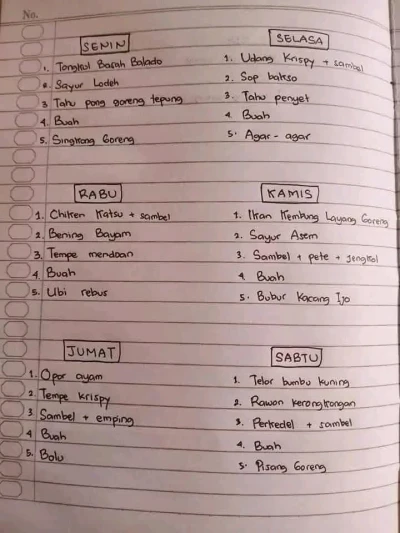 No.
SENIN
1. Tongkol Basah Balado
2. Sayur Lodeh
3 Tahu pong goreng tepung
4. Buah
5. Singkong Goreng
SELASA
1. Udang Krispy + sambel
2. Sop bakso
3. Tahu penyet
4 Buah
5. Agar-agar
RABU
1. Chiken Katsu + sambel
2. Bening Bayam
3. Tempe mendoan
4. Buah
5. Ubi rebus
KAMIS
1. Ikan Kembung Layang Goreng
2. Sayur Asem
3. Sambel + pete + jengkol
4 Buah
5. Bubur Kacang Ijo
JUMAT
1. Opor ayam
2 Tempe Krispy
3 Sambel + emping
4 Buah
5. Bolu
SABTU
1. Telor bumbu kuning
2. Rawon kerongkongan
3. Perkedel + sambel
4. Buah
5. Pisang Goreng